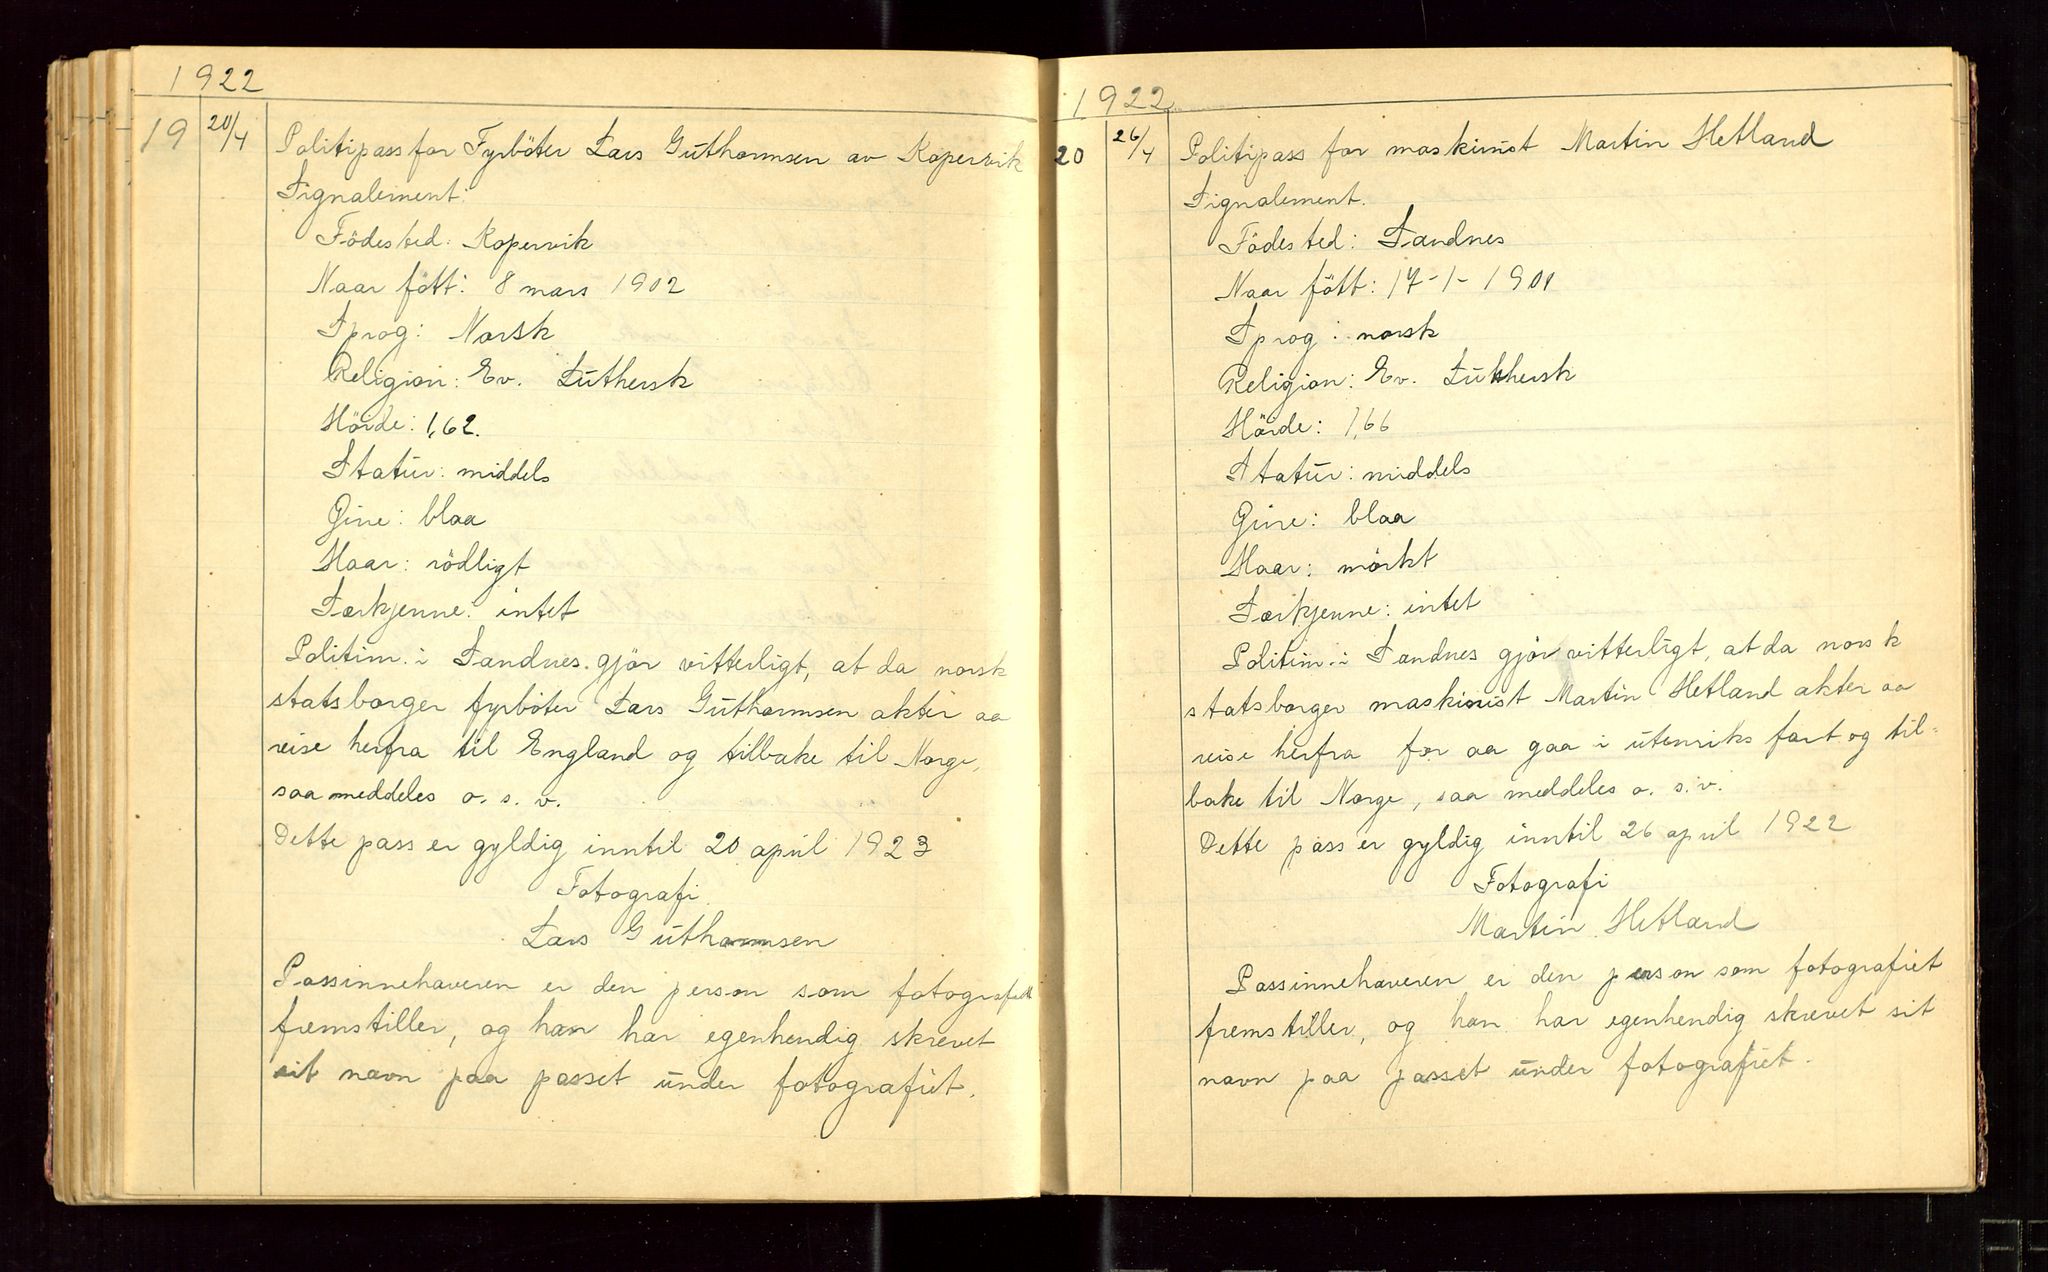 1922
19 20/4 Politipass for Fyrböter Lars Guthormsen av Kopervik
Signalement:
Födested: Kopervik
Naar fött: 8 mars 1902
Sprog: Norsk
Religion: Ev. Luthersk
Höide: 1,62.
Statur: middels
Öine: blaa
Haar: rödligt
Særkjenne: intet
Politim. i Sandnes gjör vitterligt, at da norsk
statsborger fyrböter Lars Guthormsen akter aa
reise herfra til England og tilbake til Norge,
saa meddeles o. s. v.
Dette pass er gyldig inntil 20 april 1923
Fotografi.
Lars Guthormsen
Passinnehaveren er den person som fotografiet
fremstiller, og han har egenhendig skrevet
sit navn paa passet under fotografiet.
1922
20 26/4 Politipass for maskinist Martin Hetland
Signalement.
Födested: Sandnes
Naar fött: 17-1-1901
Sprog: norsk
Religion: Ev. Luthersk
Höide: 1,66
Statur: middels
Öine: blaa
Haar: mörkt
Særkjenne: intet
Politim. i Sandnes gjör vitterligt, at da norsk
statsborger maskinist Martin Hetland akter aa
reise herfra for aa gaa i utenriks fart og til=
bake til Norge, saa meddeles o. s. v.
Dette pass er gyldig inntil 26 april 1922
Fotografi
Martin Hetland
Passinnehaveren er den person som fotografiet
fremstiller, og han har egenhendig skrevet sit
navn paa passet under fotografiet.